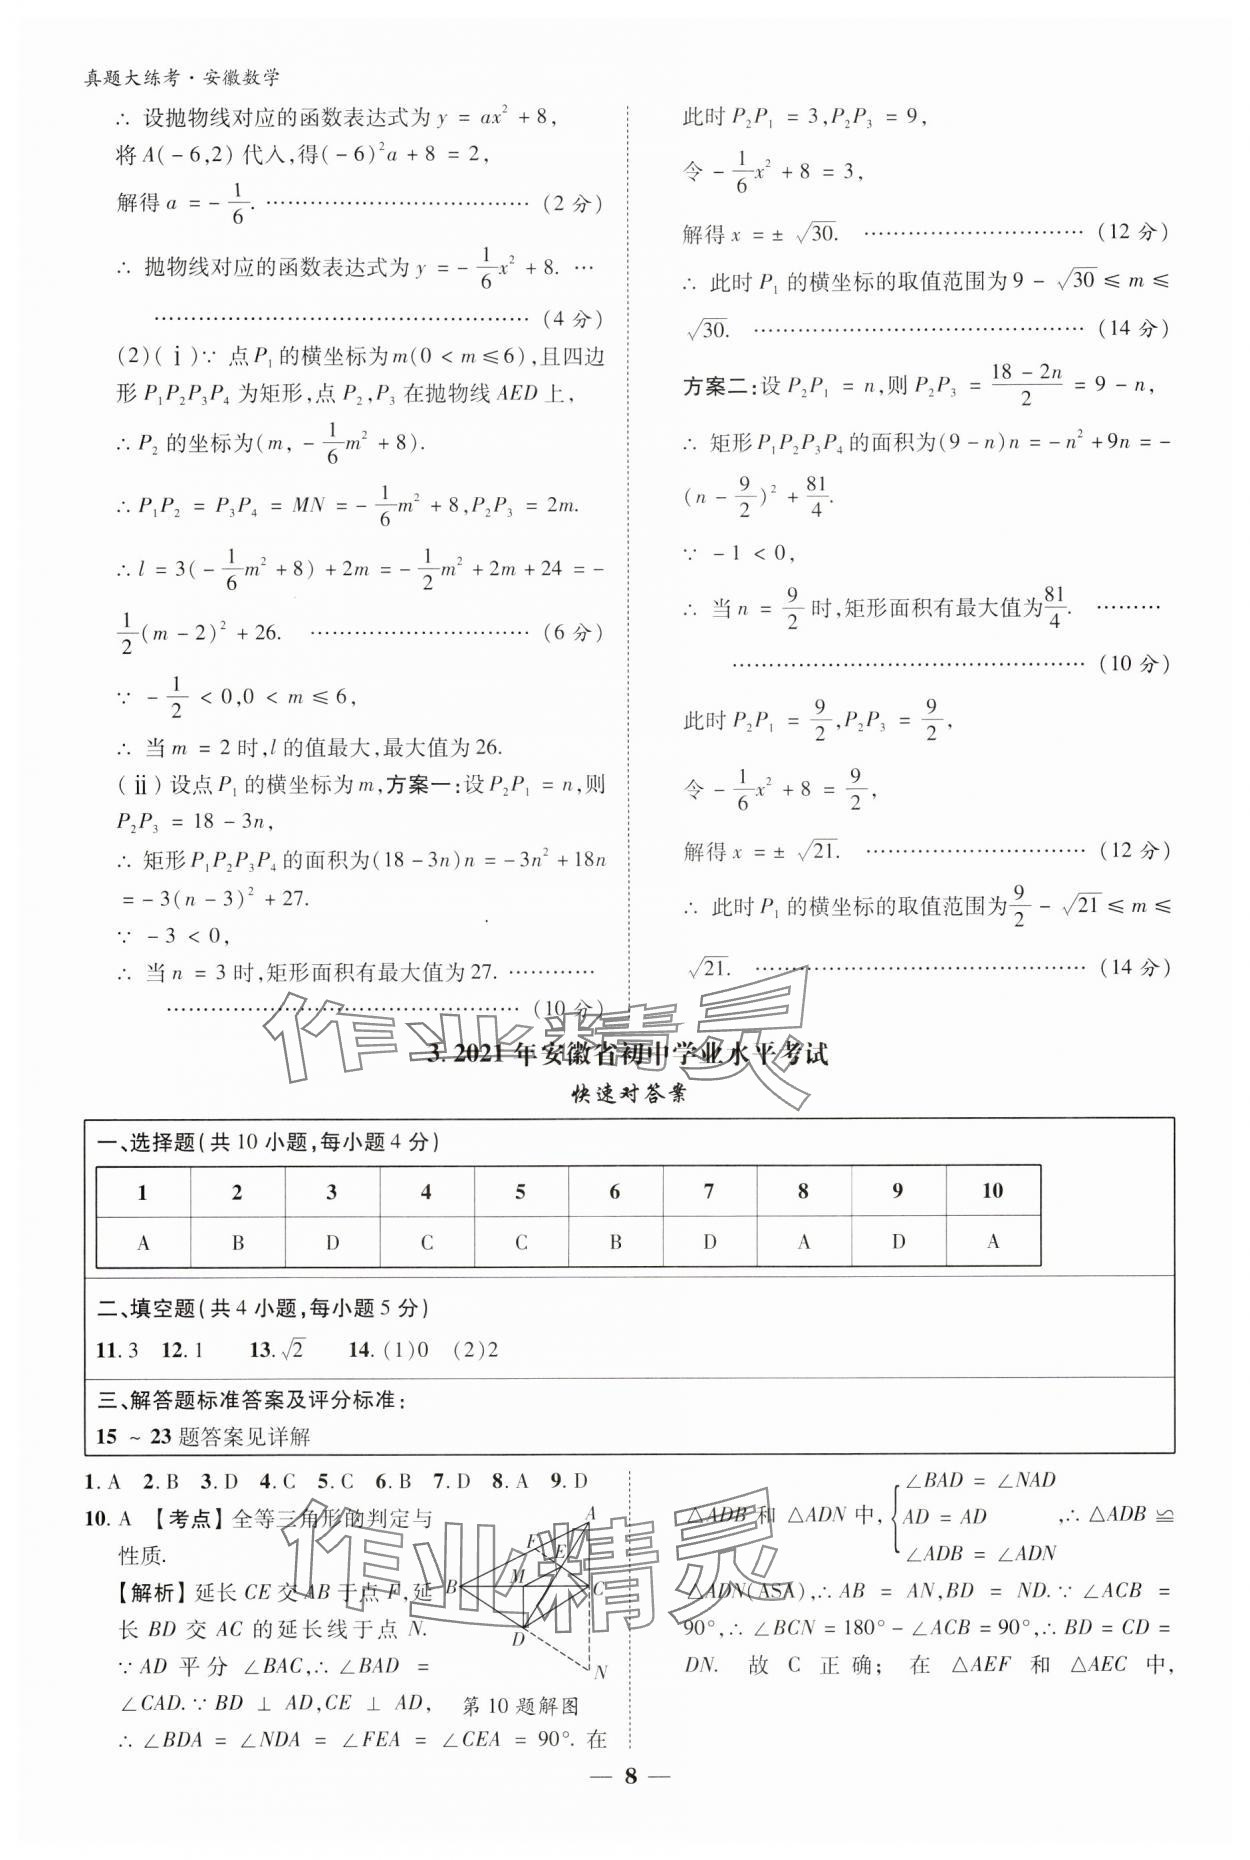 真题大练考·安徽数学
∴ 设抛物线对应的函数表达式为 y = ax² + 8,
将 A( - 6,2) 代入,得( - 6)²a + 8 = 2,
解得 a = - 1/6. ……………………………… (2 分)
∴ 抛物线对应的函数表达式为 y = - 1/6 x² + 8. …
……………………………………………… (4 分)
(2)(ⅰ)∵ 点 P₁ 的横坐标为 m(0 < m ≤ 6),且四边
形 P₁P₂P₃P₄ 为矩形,点 P₂,P₃ 在抛物线 AED 上,
∴ P₂ 的坐标为(m, - 1/6 m² + 8).
∴ P₁P₂ = P₃P₄ = MN = - 1/6 m² + 8,P₂P₃ = 2m.
∴ l = 3( - 1/6 m² + 8) + 2m = - 1/2 m² + 2m + 24 = -
1/2 (m - 2)² + 26. ………………………… (6 分)
∵ - 1/2 < 0,0 < m ≤ 6,
∴ 当 m = 2 时,l 的值最大,最大值为 26.
(ⅱ)设点 P₁ 的横坐标为 m,方案一:设 P₂P₁ = n,则
P₂P₃ = 18 - 3n,
∴ 矩形 P₁P₂P₃P₄ 的面积为(18 - 3n)n = - 3n² + 18n
= - 3(n - 3)² + 27.
∵ - 3 < 0,
∴ 当 n = 3 时,矩形面积有最大值为 27. …………
…………………………………………… (10 分)
此时 P₂P₁ = 3,P₂P₃ = 9,
令 - 1/6 x² + 8 = 3,
解得 x = ± √30. ………………………… (12 分)
∴ 此时 P₁ 的横坐标的取值范围为 9 - √30 ≤ m ≤
√30. ……………………………………… (14 分)
方案二:设 P₂P₁ = n,则 P₂P₃ = (18 - 2n)/2 = 9 - n,
∴ 矩形 P₁P₂P₃P₄ 的面积为(9 - n)n = - n² + 9n = -
(n - 9/2)² + 81/4.
∵ - 1 < 0,
∴ 当 n = 9/2 时,矩形面积有最大值为 81/4. ………
………………………………………… (10 分)
此时 P₂P₁ = 9/2,P₂P₃ = 9/2,
令 - 1/6 x² + 8 = 9/2,
解得 x = ± √21. ………………………… (12 分)
∴ 此时 P₁ 的横坐标的取值范围为 9/2 - √21 ≤ m ≤
√21. ……………………………………… (14 分)
作业精灵
3. 2021 年安徽省初中学业水平考试
快速对答案
一、选择题(共 10 小题,每小题 4 分)
1 2 3 4 5 6 7 8 9 10
A B D C C B D A D A
二、填空题(共 4 小题,每小题 5 分)
11. 3 12. 1 13. √2 14. (1)0 (2)2
三、解答题标准答案及评分标准:
15 ~ 23 题答案见详解
1. A 2. B 3. D 4. C 5. C 6. B 7. D 8. A 9. D
10. A 【考点】全等三角形的判定与
性质.
【解析】延长 CE 交 AB 于点 F,延
长 BD 交 AC 的延长线于点 N.
∵ AD 平分 ∠BAC,∴ ∠BAD =
∠CAD. ∵ BD ⊥ AD,CE ⊥ AD,
∴ ∠BDA = ∠NDA = ∠FEA = ∠CEA = 90°. 在
A
F
E
B
M
C
D
N
第 10 题解图
作业精灵
△ADB 和 △ADN 中, { ∠BAD = ∠NAD
AD = AD
∠ADB = ∠ADN
,∴ △ADB ≌
△ADN(ASA),∴ AB = AN,BD = ND. ∵ ∠ACB =
90°,∴ ∠BCN = 180° - ∠ACB = 90°,∴ BD = CD =
DN. 故 C 正确; 在 △AEF 和 △AEC 中,
— 8 —